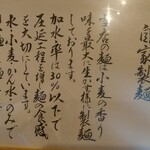 自家製麺
当店の麺は小麦の香り
味を最大に生かす様に製麺
しております。
加水率は30%以下で
圧延工程を得て麺の食感
を大切にしています。
水・小麦・かん水のみで